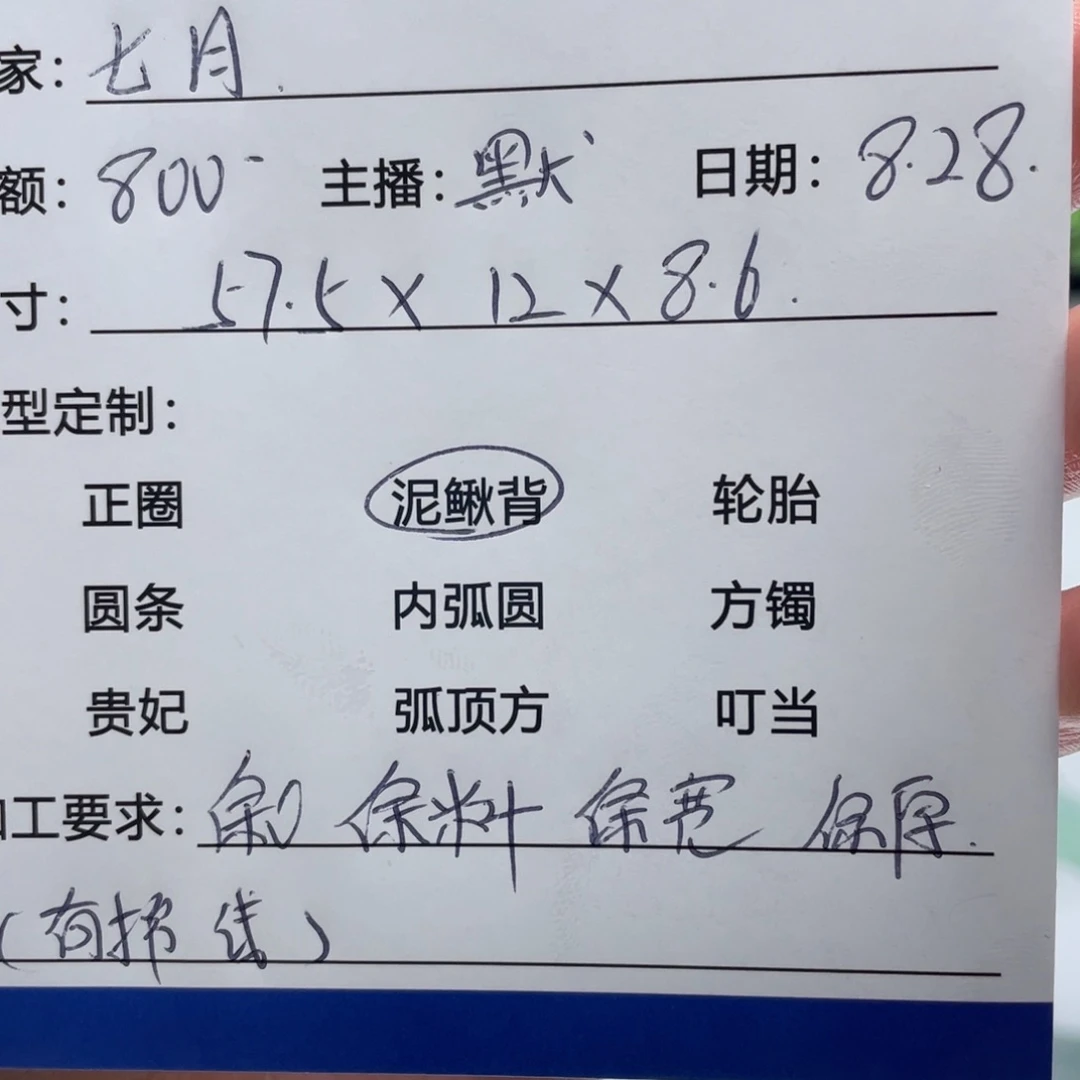 家：七月.
额：800- 主播：默 日期：8.28.
寸：57.5×12×8.6.
型定制：
正圈 泥鳅背 轮胎
圆条 内弧圆 方镯
贵妃 弧顶方 叮当
加工要求： 保料 保宽 保厚.
(有 线)